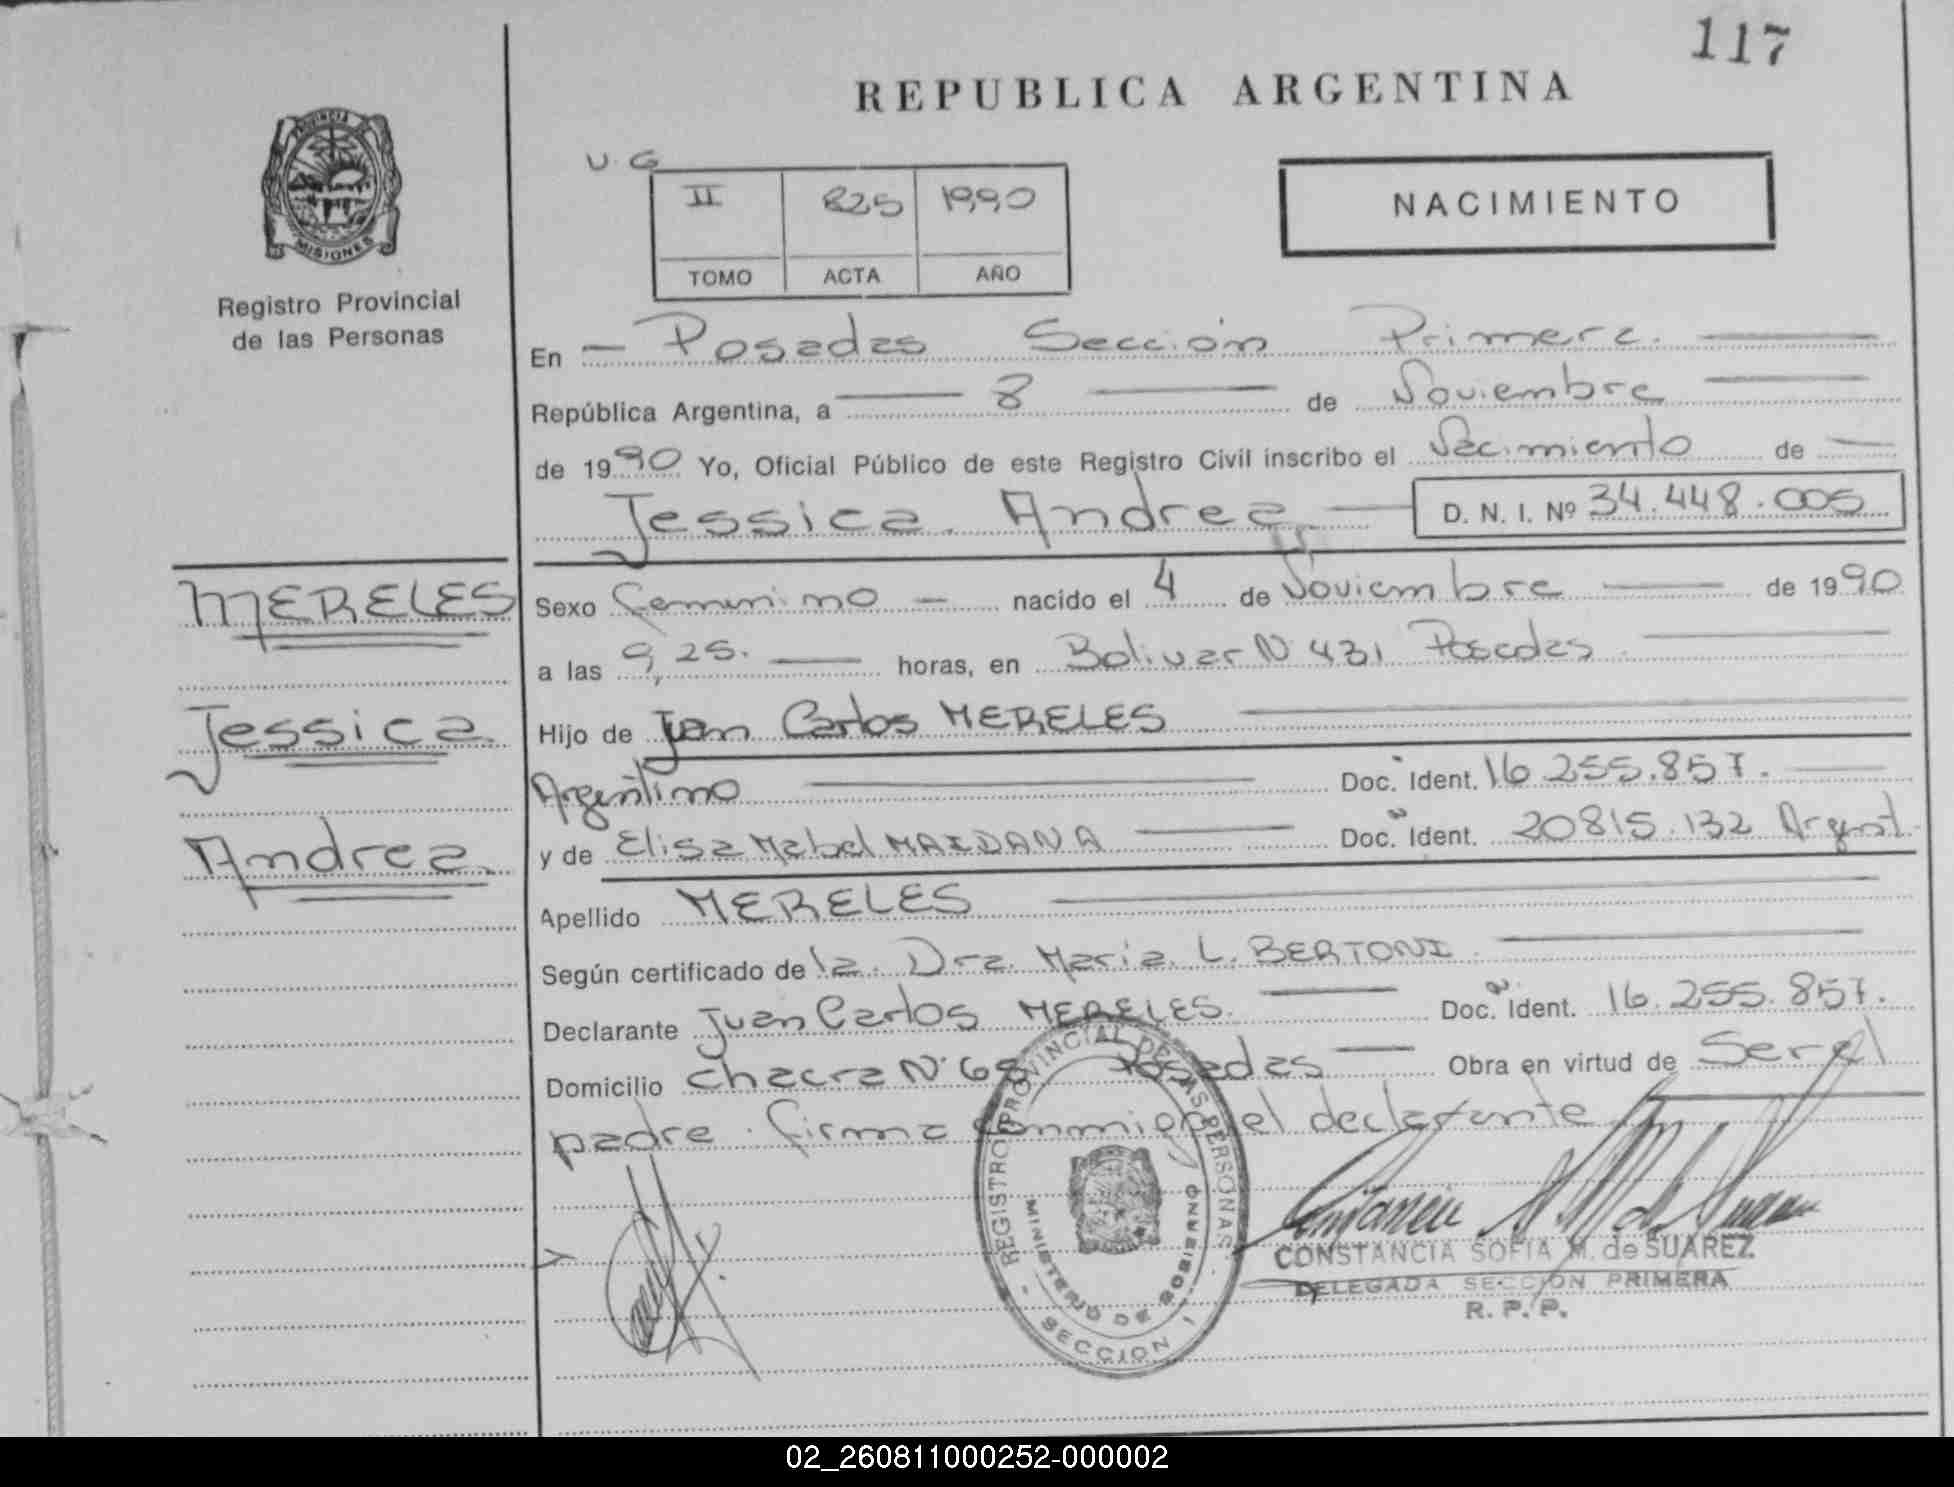 117
REPUBLICA ARGENTINA
PROVINCIA DE
MISIONES
Registro Provincial
de las Personas
U.G
II 825 1990
TOMO ACTA AÑO
NACIMIENTO
En Posadas Sección Primera.
República Argentina, a 8 de Noviembre
de 1990 Yo, Oficial Público de este Registro Civil inscribo el Nacimiento de
Jessica Andrea D. N. I. Nº 34.448.005
MERELES
Sexo femenino nacido el 4 de Noviembre de 1990
a las 9,25. horas, en Bolivar Nº 431 Posadas
Jessica
Hijo de Juan Carlos MERELES
Argentino Doc. Ident. 16.255.857.
Andrea
y de Elisa Mabel MAIDANA Doc. Ident. 20815.132 Argent.
Apellido MERELES
Según certificado de la Dra. Maria L. BERTONI
Declarante Juan Carlos MERELES Doc. Ident. 16.255.857.
Domicilio chacra Nº 68 Posadas Obra en virtud de Ser el
padre. firma conmigo el declarante
REGISTRO PROVINCIAL DE LAS PERSONAS
MINISTERIO DE GOBIERNO
SECCION 1
CONSTANCIA SOFIA M. de SUAREZ
DELEGADA SECCION PRIMERA
R. P. P.
02_260811000252-000002